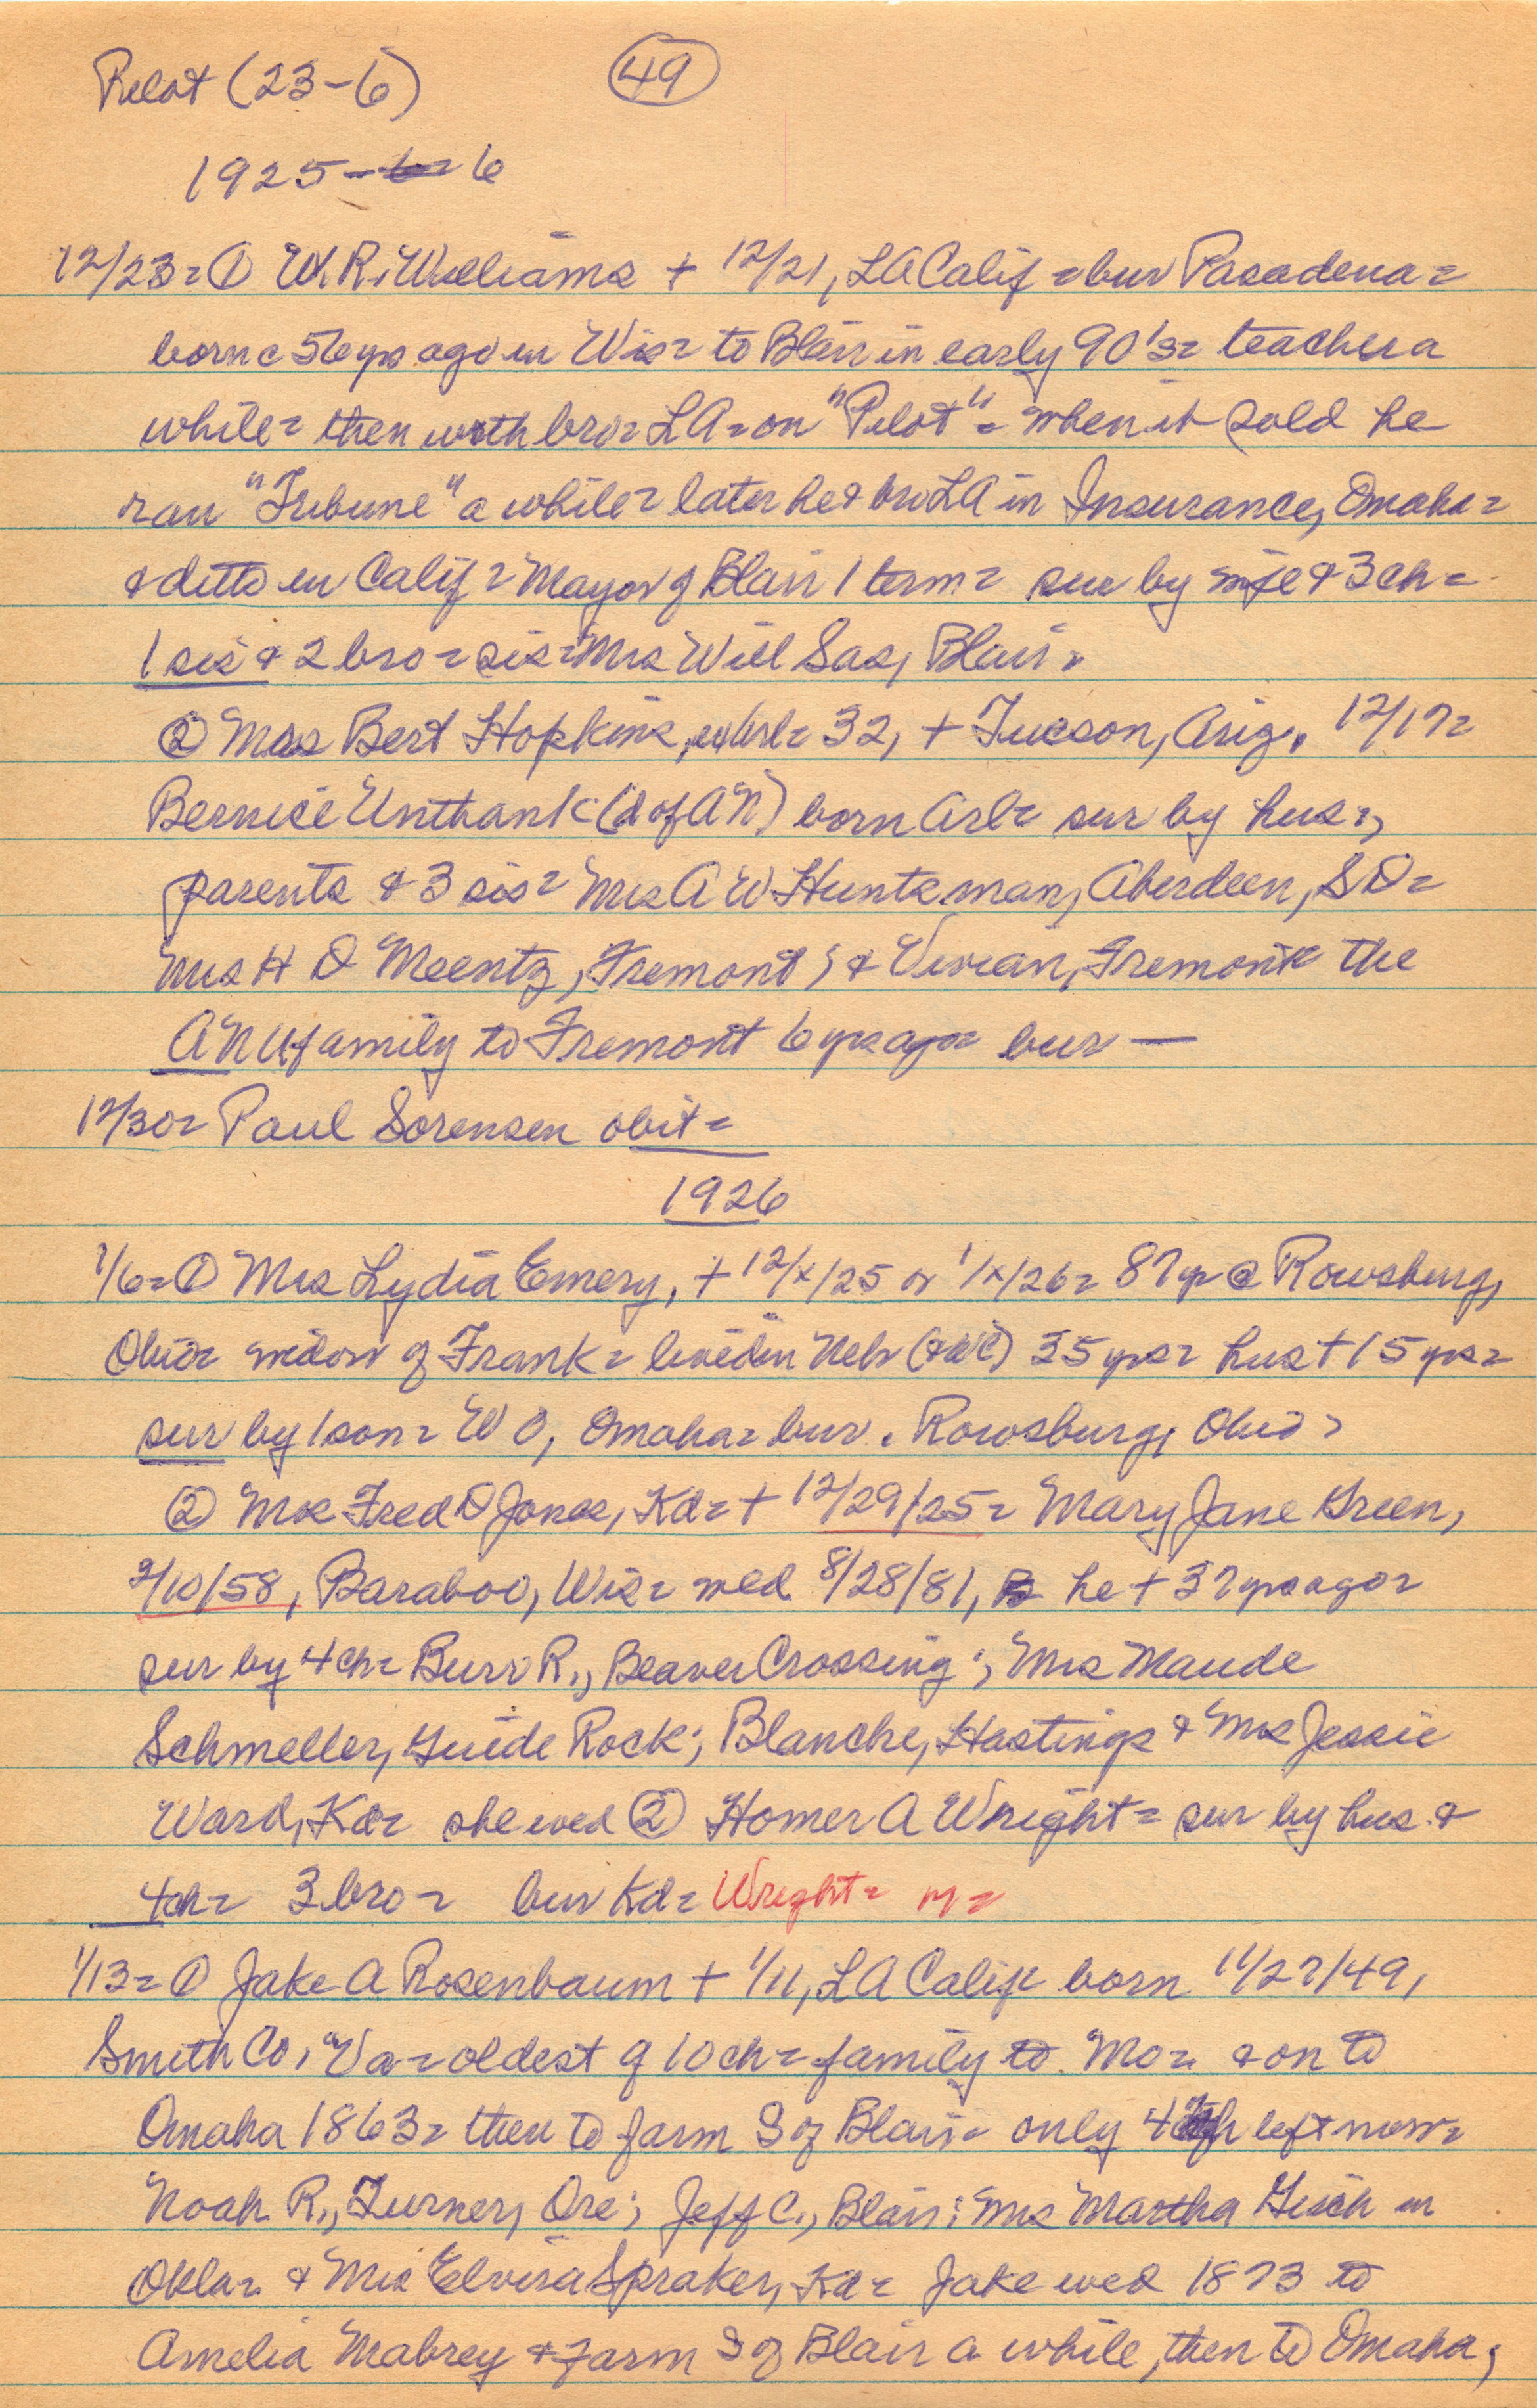 Pilot (23-6) 49
1925-6
12/23= ① W.R. Williams + 12/21, LA Calif = bur Pasadena=
born c 56 yrs ago in Wis= to Blair in early 90's= teacher a
while= then with bro= LA= on "Pilot"= when it sold he
ran "Tribune" a while= later he & bro LA in Insurance, Omaha=
& ditto in Calif= Mayor of Blair 1 term= sur by wife & 3 ch=
1 sis & 2 bro= sis= Mrs Will Sas, Blair=
② Mrs Bert Hopkins, Arl= 32, + Tucson, Ariz. 12/17=
Bernice Unthank (d of AN) born Arl= sur by hus=,
parents & 3 sis= Mrs A W Huntsman, Aberdeen, SD=
Mrs H D Meentz, Fremont; & Vivian, Fremont= the
ANU family to Fremont 6 yrs ago= bur —
12/30= Paul Sorensen obit=
1926
1/6= ① Mrs Lydia Emery, + 12/x/25 or 1/x/26= 87 yr @ Rowsburg,
Ohio= widow of Frank= lived in Nebr (& WC) 35 yrs= hus + 15 yrs=
sur by 1 son= W O, Omaha= bur. Rowsburg, Ohio=
② Mrs Fred D Jones, Kd= + 12/29/25= Mary Jane Green,
2/10/58, Baraboo, Wis= wed 8/28/81, he + 37 yrs ago=
sur by 4 ch= Burr R., Beaver Crossing; Mrs Maude
Schmeller, Guide Rock; Blanche, Hastings & Mrs Jessie
Ward, Kd= she wed ② Homer A Wright= sur by hus. &
4 ch= 3 bro= bur Kd= Wright= m=
1/13= ① Jake A Rosenbaum + 1/11, LA Calif= born 11/27/49,
Smith Co, Va= oldest of 10 ch= family to Mo= & on to
Omaha 1863= then to farm S of Blair= only 4 left now=
Noah R., Turner, Ore; Jeff C., Blair; Mrs Martha Gish in
Okla= & Mrs Elvira Spraker, Kd= Jake wed 1873 to
Amelia Mabrey & farm S of Blair a while, then to Omaha,